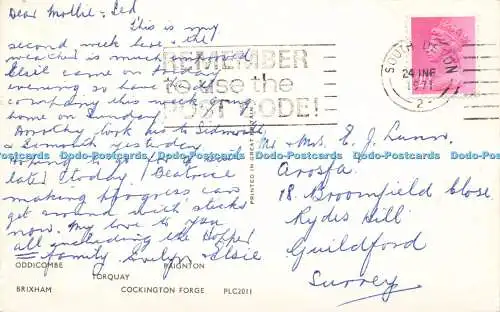 Dear Mollie & Ted
This is my
second week here & the
weather is much improved
Elsie came on Friday
evening so have had
company this week going
home on Sunday
took us to Sidmouth
& Exmouth yesterday
hoping
later today. Beatrice
making progress, can
get around with sticks
now. My love to you
all including the Hopper
family Evelyn & Elsie
REMEMBER
to use the
POST CODE!
SOUTH DEVON
24 JNE
1971
2
Mr & Mrs. E. J. Lunn.
Arosfa.
18. Broomfield Close
Rydes Hill
Guildford
Surrey
PRINTED IN GREAT BRITAIN
Postcards Dodo-Postcards Dodo-Postcards Dodo-Postcards Dodo-Postcards Dodo-Postcards Dodo
ODDICOMBE PAIGNTON
TORQUAY
BRIXHAM COCKINGTON FORGE PLC2011